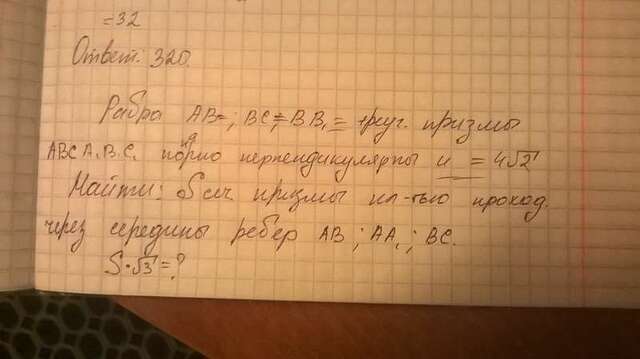 =32
Ответ: 320.
Ребра AB=; BC=BB₁= треуг. призмы
ABCA₁B₁C₁ попарно перпендикулярны и = 4√2
Найти: S сеч. призмы пл-тью проход.
через середины ребер AB; AA₁; BC.
S·√3=?